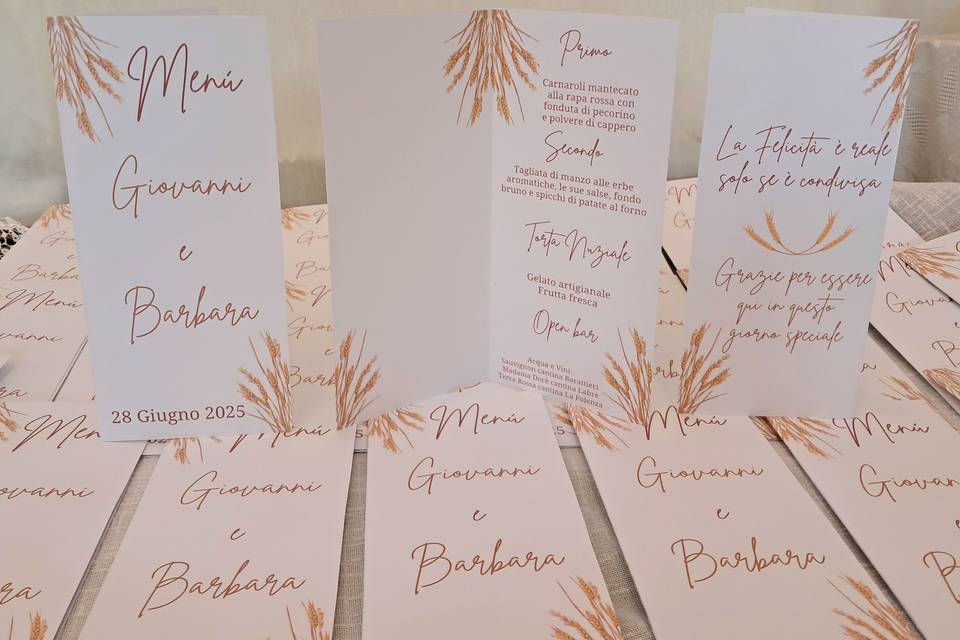 Menú
Giovanni
e
Barbara
28 Giugno 2025
Primo
Carnaroli mantecato
alla rapa rossa con
fonduta di pecorino
e polvere di cappero
Secondo
Tagliata di manzo alle erbe
aromatiche, le sue salse, fondo
bruno e spicchi di patate al forno
Torta Nuziale
Gelato artigianale
Frutta fresca
Open bar
Acqua e Vini:
Sauvignon cantina Barattieri
Madama Dorè cantina Labrè
Terra Rossa cantina La Polenza
La Felicità è reale
solo se è condivisa
Grazie per essere
qui in questo
giorno speciale
Menú
Giovanni
e
Barbara
Menú
Giovanni
e
Barbara
Menú
Giovanni
e
Barbara
Menú
Giovanni